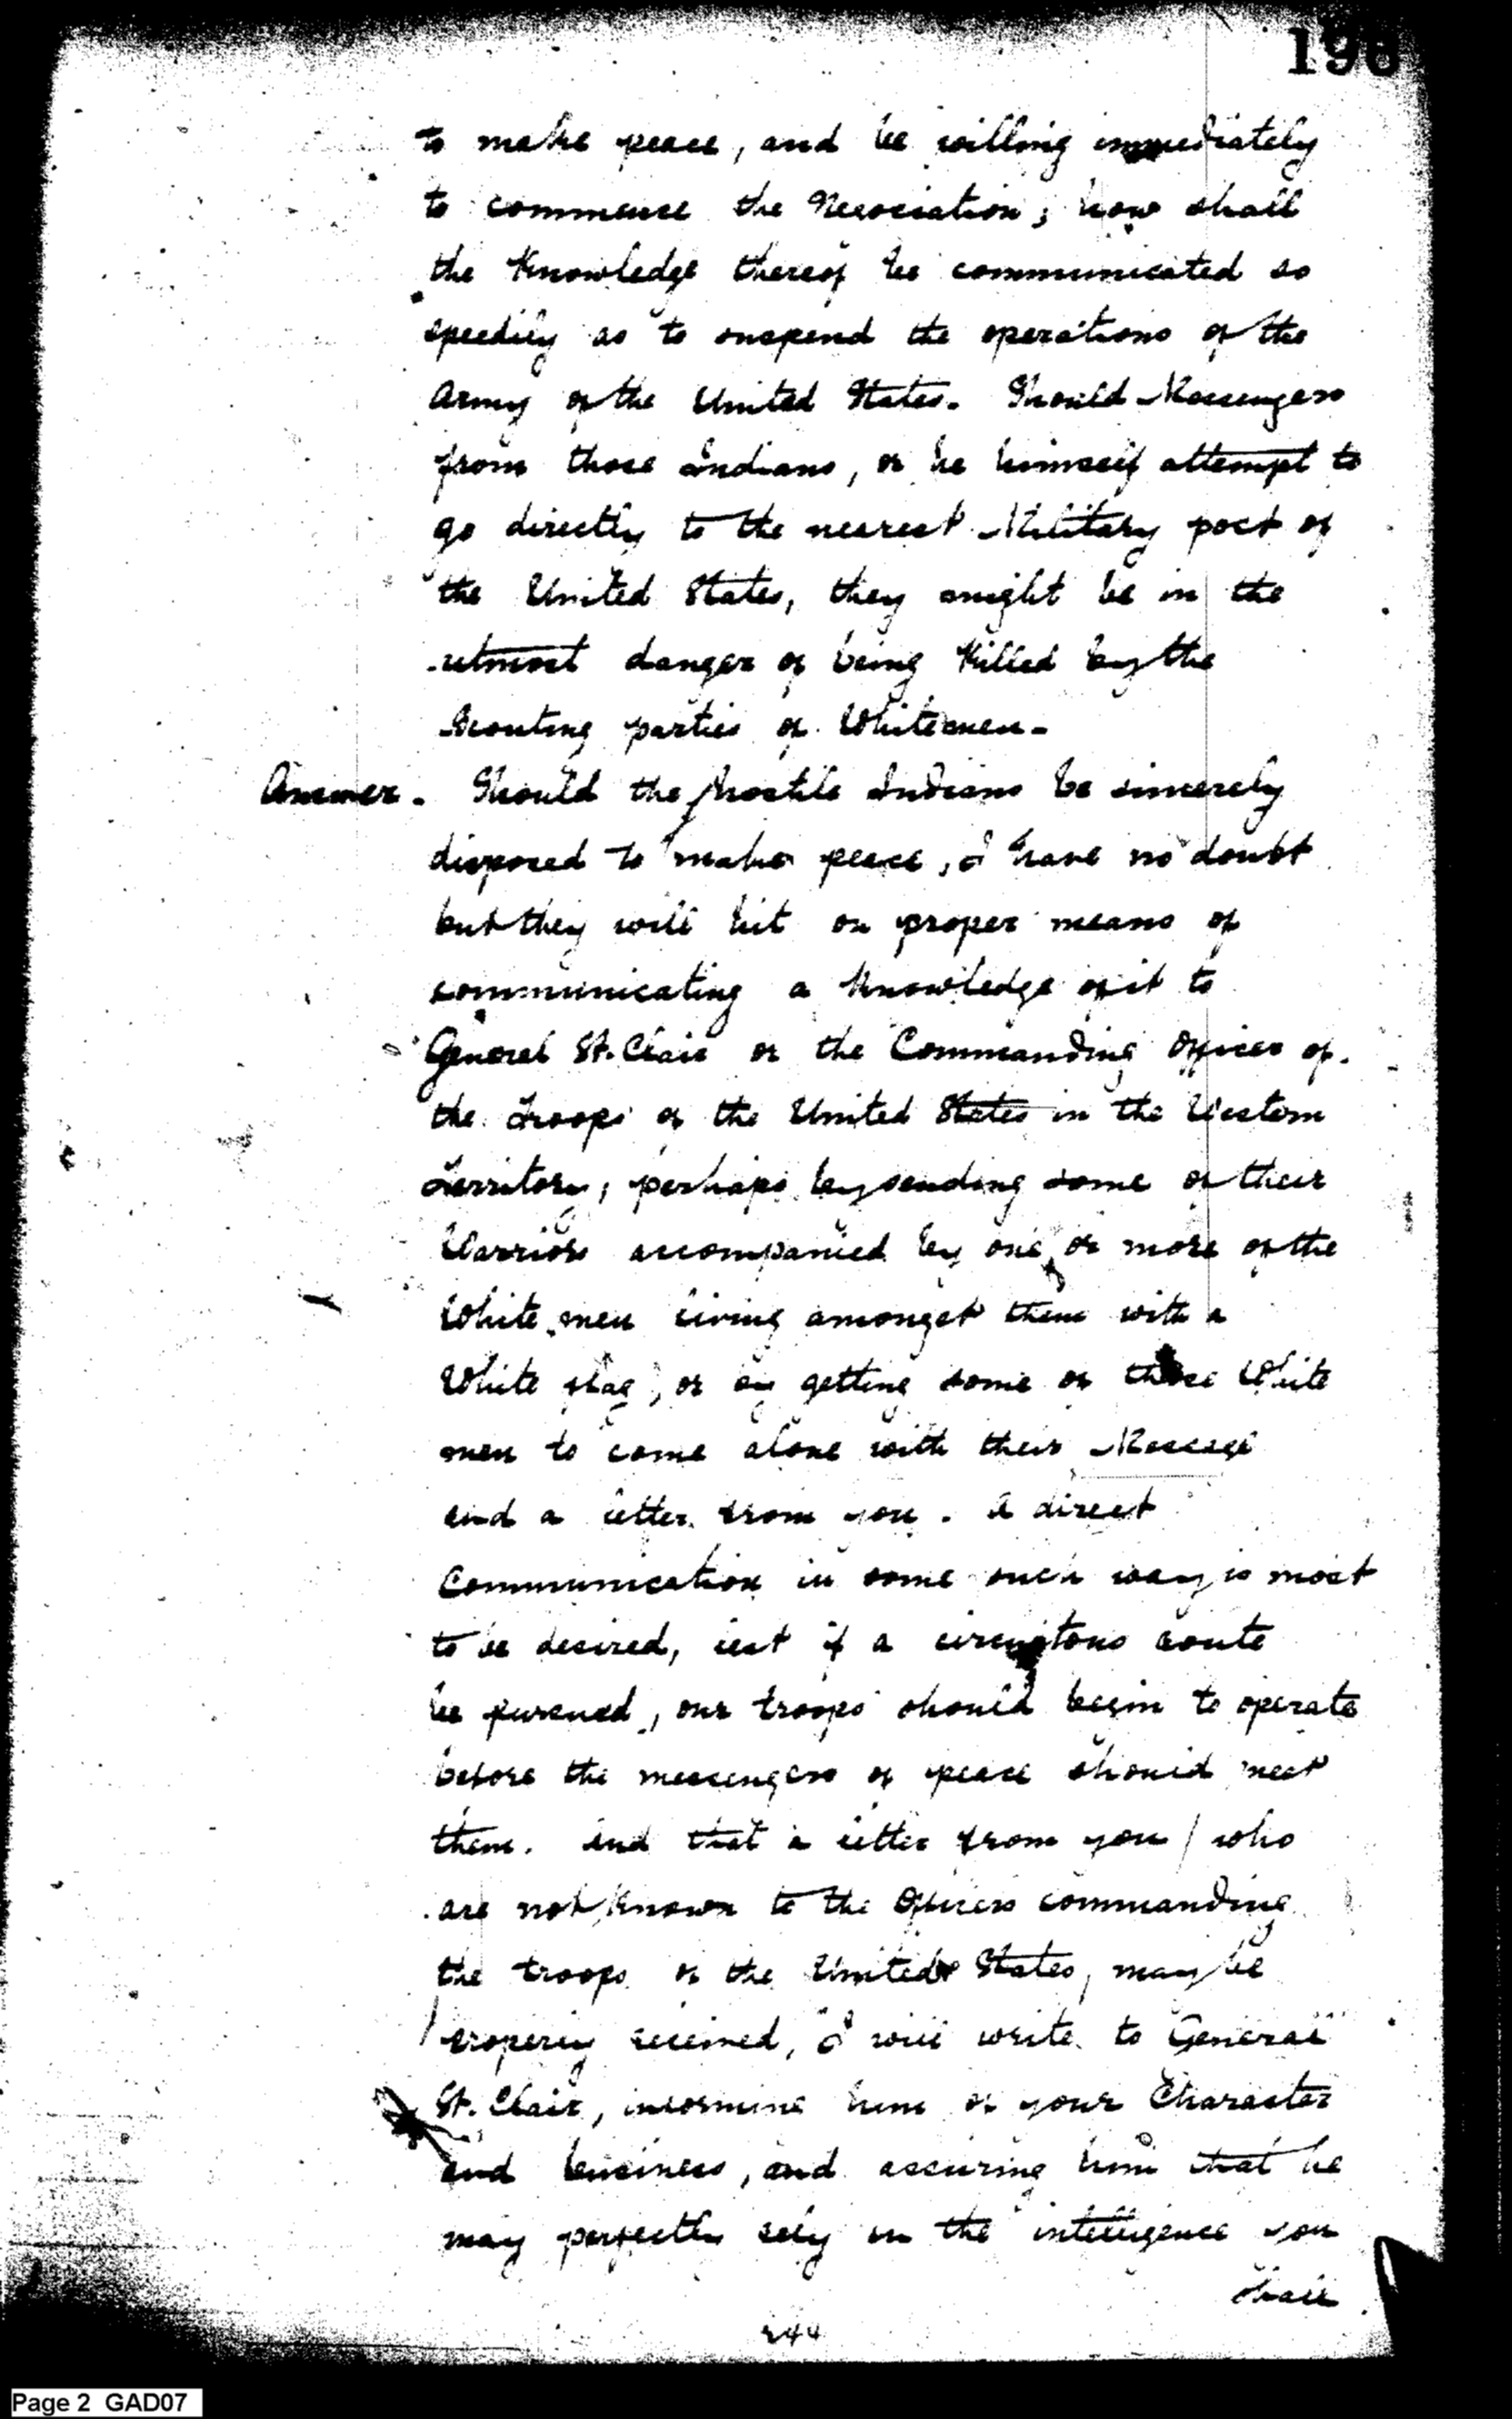 198
to make peace, and be willing immediately
to commence the Negociation; how shall
the Knowledge thereof be communicated so
speedily as to suspend the operations of the
Army of the United States. Should Messengers
from those Indians, or he himself attempt to
go directly to the nearest Military post of
the United States, they might be in the
utmost danger of being Killed by the
Scouting parties of Whitemen-
Answer. Should the hostile Indians be sincerely
disposed to make peace, I have no doubt
but they will hit on proper means of
communicating a Knowledge of it to
General St. Clair or the Commanding Officer of
the Troops of the United States in the Western
Territory, perhaps by sending some of their
Warriors accompanied by one or more of the
White men living amongst them with a
White flag, or by getting some of those White
men to come alone with their Message
and a letter from you. A direct
Communication in some such way is most
to be desired, lest if a circuitous route
be pursued, our troops should begin to operate
before the messengers of peace should meet
them. And that a letter from you / who
are not Known to the Officers commanding
the troops of the United States, may be
properly received, I will write to General
St. Clair, informing him of your Character
and business, and assuring him that he
may perfectly rely on the intelligence you
shall
244
Page 2 GAD07